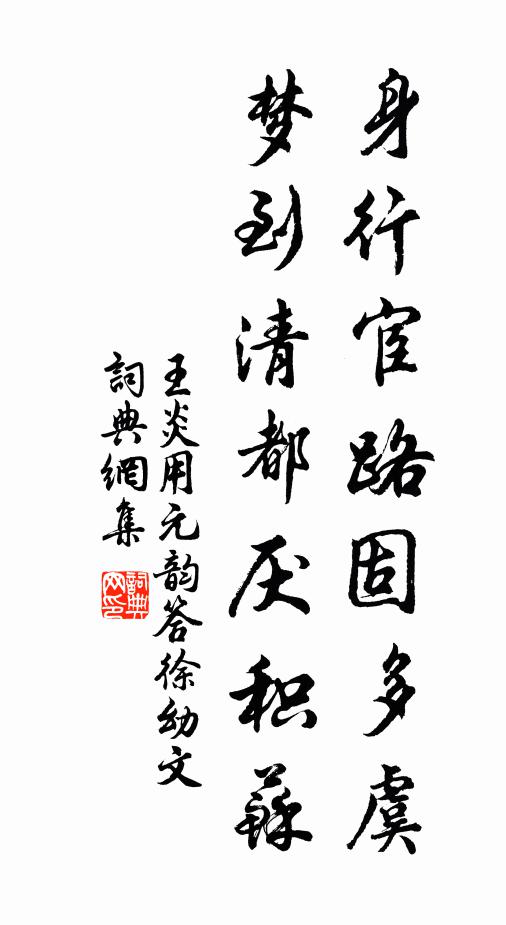 身行宦路固多虞
梦到清都厌积蘇
王炎用元韵答徐幼文
詞典網集
詞典网印